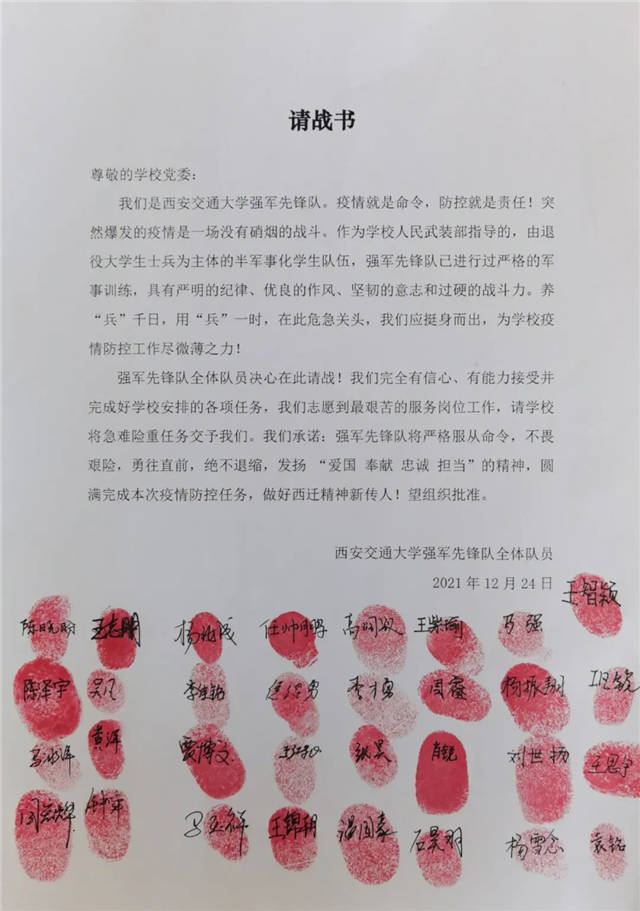 请战书
尊敬的学校党委：
我们是西安交通大学强军先锋队。疫情就是命令，防控就是责任！突
然爆发的疫情是一场没有硝烟的战斗。作为学校人民武装部指导的，由退
役大学生士兵为主体的半军事化学生队伍，强军先锋队已进行过严格的军
事训练，具有严明的纪律、优良的作风、坚韧的意志和过硬的战斗力。养
“兵”千日，用“兵”一时，在此危急关头，我们应挺身而出，为学校疫
情防控工作尽微薄之力！
强军先锋队全体队员决心在此请战！我们完全有信心、有能力接受并
完成好学校安排的各项任务，我们志愿到最艰苦的服务岗位工作，请学校
将急难险重任务交予我们。我们承诺：强军先锋队将严格服从命令，不畏
艰险，勇往直前，绝不退缩，发扬 “爱国 奉献 忠诚 担当”的精神，圆
满完成本次疫情防控任务，做好西迁精神新传人！望组织批准。
西安交通大学强军先锋队全体队员
2021 年 12 月 24 日
王智颖
任帅鹏 万强
陈泽宇 李佳铭 周睿 杨振翔
黄洋 贾博文 张昊 肖锐 刘世扬 王思宇
王锦朝 温国豪 石昊羽 杨雪念 袁铭